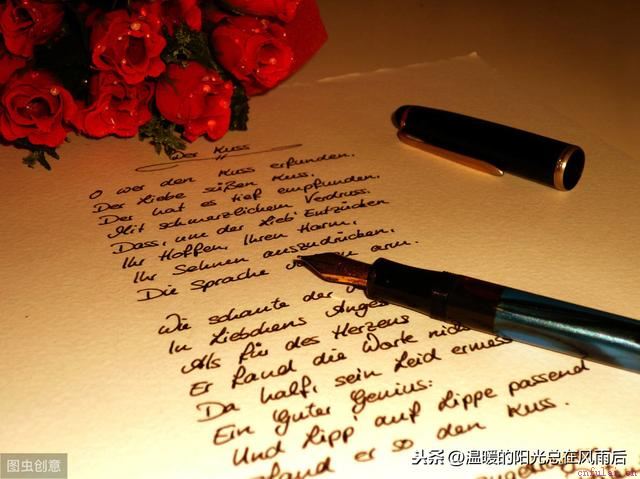 Der Kuss
O wer den Kuss erfunden,
Der Liebe süßen Kuss,
Der hat es tief empfunden,
Mit schmerzlichem Verdruss.
Dass, um der Lieb' Entzücken
Ihr Hoffen, Ihren Harm,
Ihr Sehnen auszudrücken,
Die Sprache arm.
Wie schaute der
In Liebchens Anges
Als für des Herzens
Er fand die Worte nich
Da half, sein Leid ermess
Ein guter Genius:
Und Lipp' auf Lippe passend
fand er so den Kuss.
图虫创意
头条 @温暖的阳光总在风雨后
cnfulan.cn